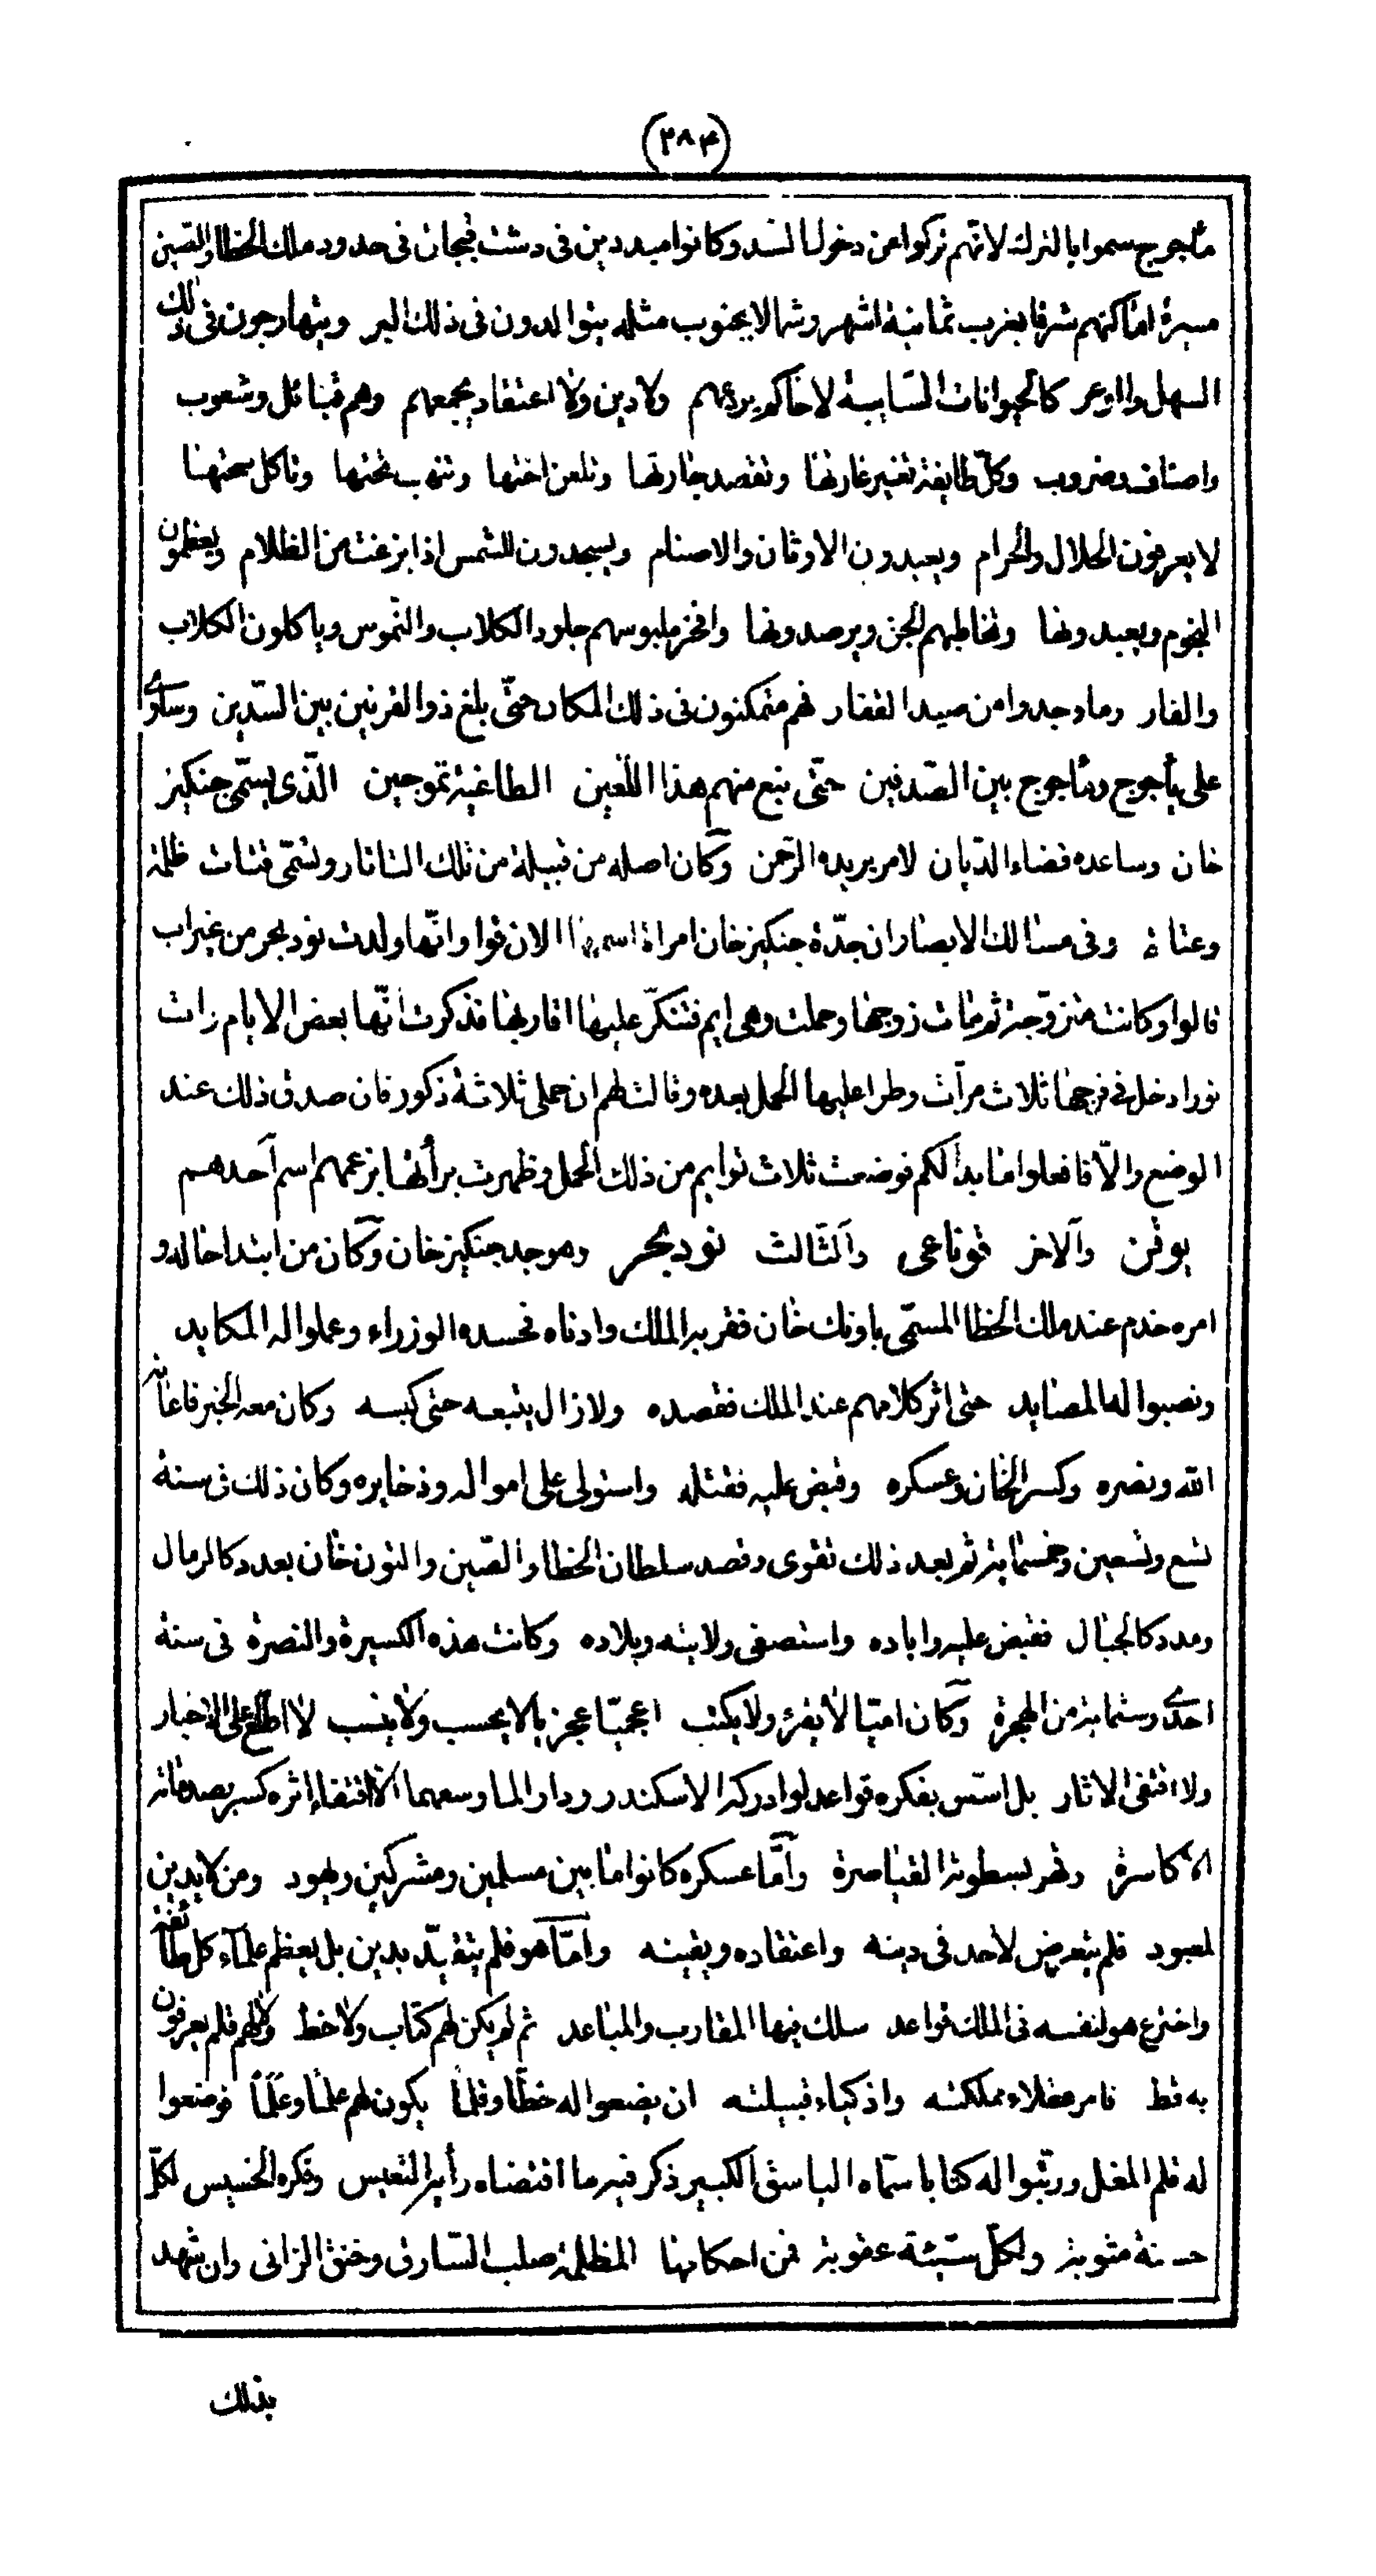 (٢٨٤)
مأجوج سموا بالترك لانهم تركوا من دخول السد وكانوا مبددين فى دشت قبجان فى حدود ملك الخطا والصين
مسيرة اماكنهم شرقا بغرب ثمانية اشهر وشمالا بجنوب مثله يتوالدون فى ذلك البر ويتهارجون فى ذلك
السهل والوعر كالحيوانات السايبة لا حاكم يردعهم ولا دين ولا اعتقاد يجمعهم وهم قبائل وشعوب
واصناف وضروب وكل طايفة تغير غارتها وتقصد جارتها وتلعن اختها وتنهب تختها وتاكل سحتها
لا يعرفون الحلال والحرام ويعبدون الاوثان والاصنام ويسجدون للشمس اذا بزغت من الظلام ويعظمون
النجوم ويعبدونها وتخاطبهم الجن ويرصدونها وافخر ملبوسهم جلود الكلاب والنموس وياكلون الكلاب
والفار وما وجدوا من صيد القفار فهم متمكنون فى ذلك المكان حتّى بلغ ذوالقرنين بين السّدين وساوى
على يأجوج ومأجوج بين الصّدفين حتّى نبع منهم هذا اللّعين الطاغية تموجين الّذى يسمّى جنكيز
خان وساعده قضاء الدّيان لامر يريده الرّحمن وكان اصله من قبيلة من تلك التاتار وتسمّى قتات ظلمة
وعتاة وفى مسالك الابصار ان جدّة جنكيز خان امراة اسمها الان قوا وانّها ولدت نودبحر من غير اب
قالوا وكانت متزوّجة ثم مات زوجها وحملت وهى ايم فتنكّر عليها اقاربها فذكرت انّها بعض الايام رات
نورا دخل فى فرجها ثلاث مرآت وطرا عليها الحمل بعده وقالت لهم ان حملى ثلاثة ذكور فان صدق ذلك عند
الوضع والّا فافعلوا ما بدا لكم فوضعت ثلاث توايم من ذلك الحمل وظهرت برأتها بزعمهم اسم احدهم
بوقن والاخر قوناعى والثّالث نودبحر وهو جد جنكيز خان وكان من ابتدا حاله و
امره خدم عند ملك الخطا المسمّى باونك خان فقربه الملك وادناه فحسده الوزراء وعملوا له المكايد
ونصبوا له المصايد حتى اثر كلامهم عند الملك فقصده ولا زال يتبعه حتى كبسه وكان معه الخبر فاعانه
الله ونصره وكسر الخان وعسكره وقبض عليه فقتله واستولى على امواله وذخايره وكان ذلك فى سنة
تسع وتسعين وخمسماية ثم بعد ذلك تقوى وقصد سلطان الخطا والصّين والتون خان بعدد كالرمال
ومدد كالجبال فقبض عليه واباده واستصفى ولايته وبلاده وكانت هذه الكسيرة والنصرة فى سنة
احدى وستماية من الهجرة وكان اميّا لا يقرء ولا يكتب اعجميّا عجزيا لا يحسب ولا ينسب لا اطلع على الاخبار
ولا اقتفى الاثار بل اسّس بفكره قواعد لو ادركه الاسكندر ودارا لما وسعهما الا اقتفاء اثره كسر بصدماته
الاكاسرة وقهر بسطوته القياصرة وامّا عسكره كانوا ما بين مسلمين ومشركين ويهود ومن لا يدين
لمعبود فلم يتعرض لاحد فى دينه واعتقاده ويقينه وامّا هو فلم يتقيّد بدين بل يعظم علماء كل طائفة
واخترع هو لنفسه فى الملك قواعد سلك فيها المقارب والمباعد ثم لم يكن لهم كتاب ولا خط ولا لهم قلم يعرفون
به قط فامر عقلاء مملكته واذكياء قبيلته ان يضعوا له خطّا وقلما يكون لهم علما وعلما فوضعوا
له قلم المغل ورتّبوا له كتابا سمّاه الياسق الكبير ذكر فيه ما اقتضاه رأيه التعيس وفكره الخسيس لكلّ
حسنة مثوبة ولكلّ سيّئة عقوبة فمن احكامها المظلمة صلب السّارق وخنق الزانى وان شهد
بذلك